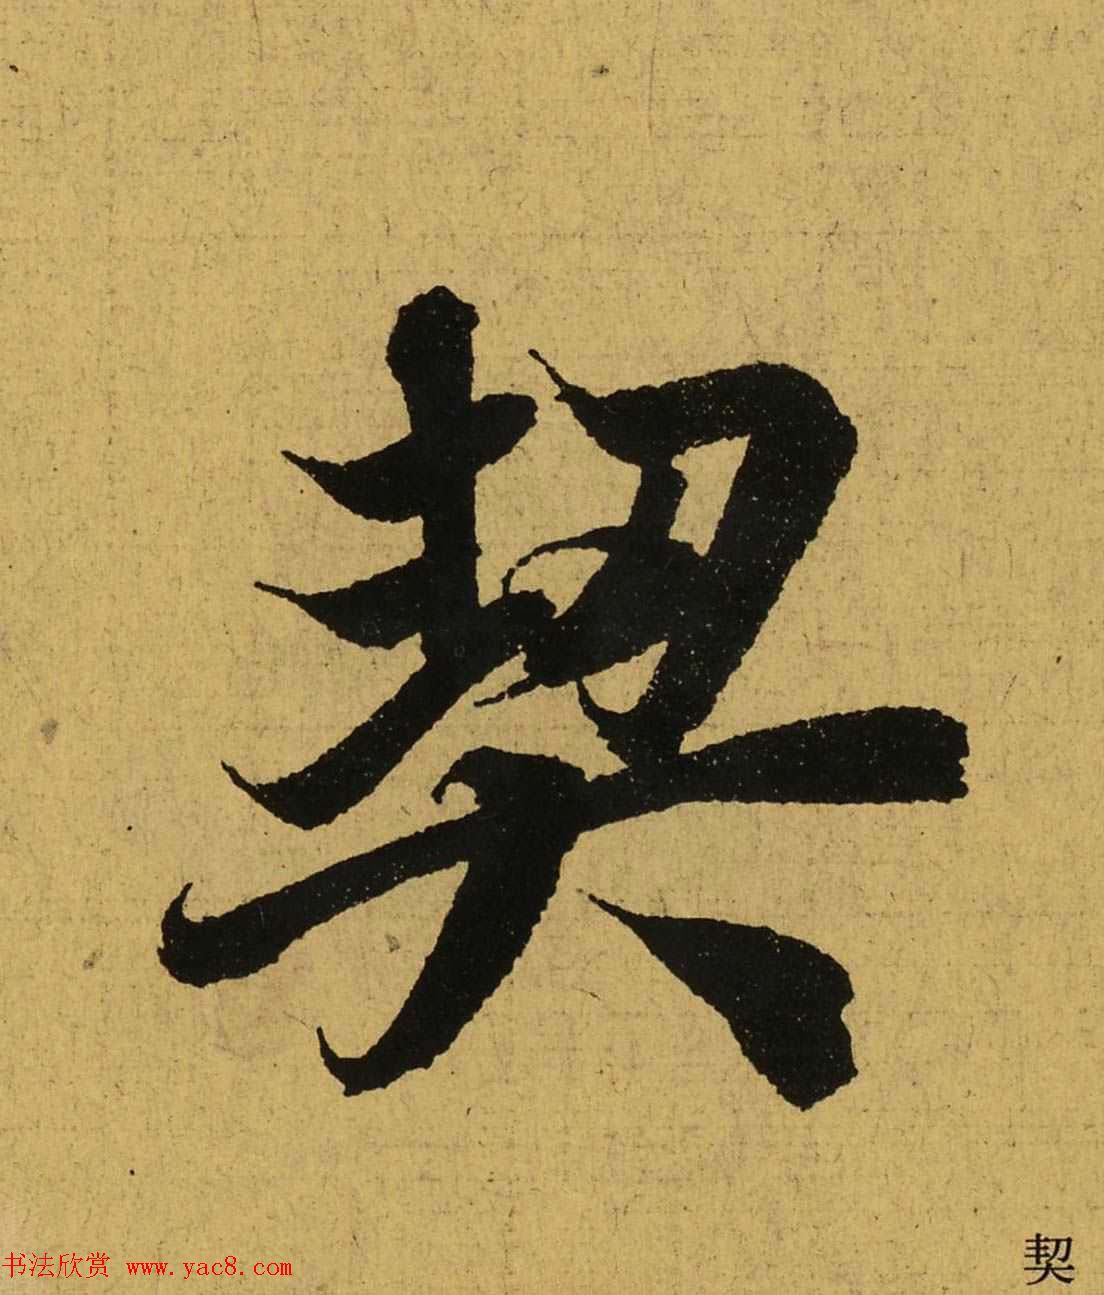 契
契
书法欣赏 www.yac8.com